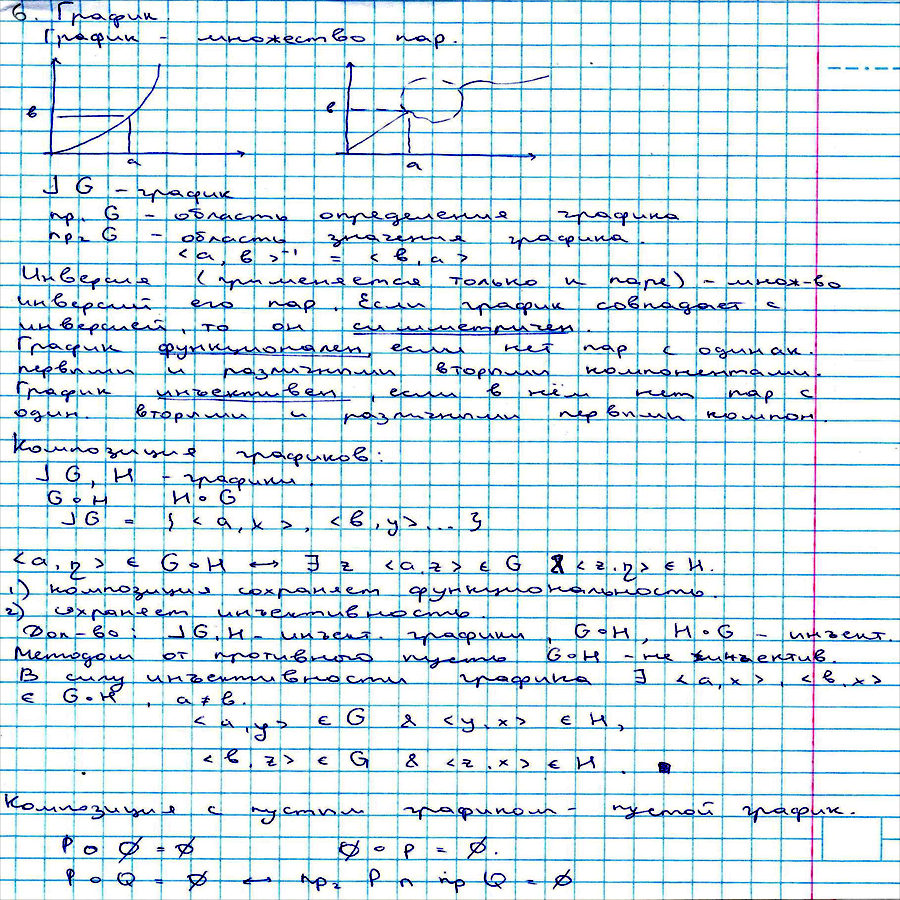 6. График.
График - множество пар.
в
а
в
а
⅃ G - график
пр₁ G - область определения графика
пр₂ G - область значения графика.
<а, в>⁻¹ = <в, а>
Инверсия (применяется только к паре) - множ-во
инверсий его пар. Если график совпадает с
инверсией, то он симметричен.
График функционален, если нет пар с одинак.
первыми и различными вторыми компонентами.
График инъективен, если в нём нет пар с
один. вторыми и различными первыми компон.
Композиция графиков:
⅃ G, H - графики.
G∘H H∘G
⅃G = {<а, x>, <в, y>...}
<а, η> ∈ G∘H ↔ ∃ z <а, z> ∈ G & <z, η> ∈ H.
1) композиция сохраняет функциональность.
2) сохраняет инъективность.
Док-во: ⅃G, H - инъект. графики, G∘H, H∘G - инъект.
Методом от противного пусть G∘H - не инъектив.
В силу инъективности графика ∃ <а, x>, <в, x>
∈ G∘H, а ≠ в.
<а, y> ∈ G & <y, x> ∈ H,
<в, z> ∈ G & <z, x> ∈ H.
Композиция с пустым графиком - пустой график.
P∘∅ = ∅ ∅∘P = ∅.
P∘Q = ∅ ↔ пр₂ P ∩ пр Q = ∅